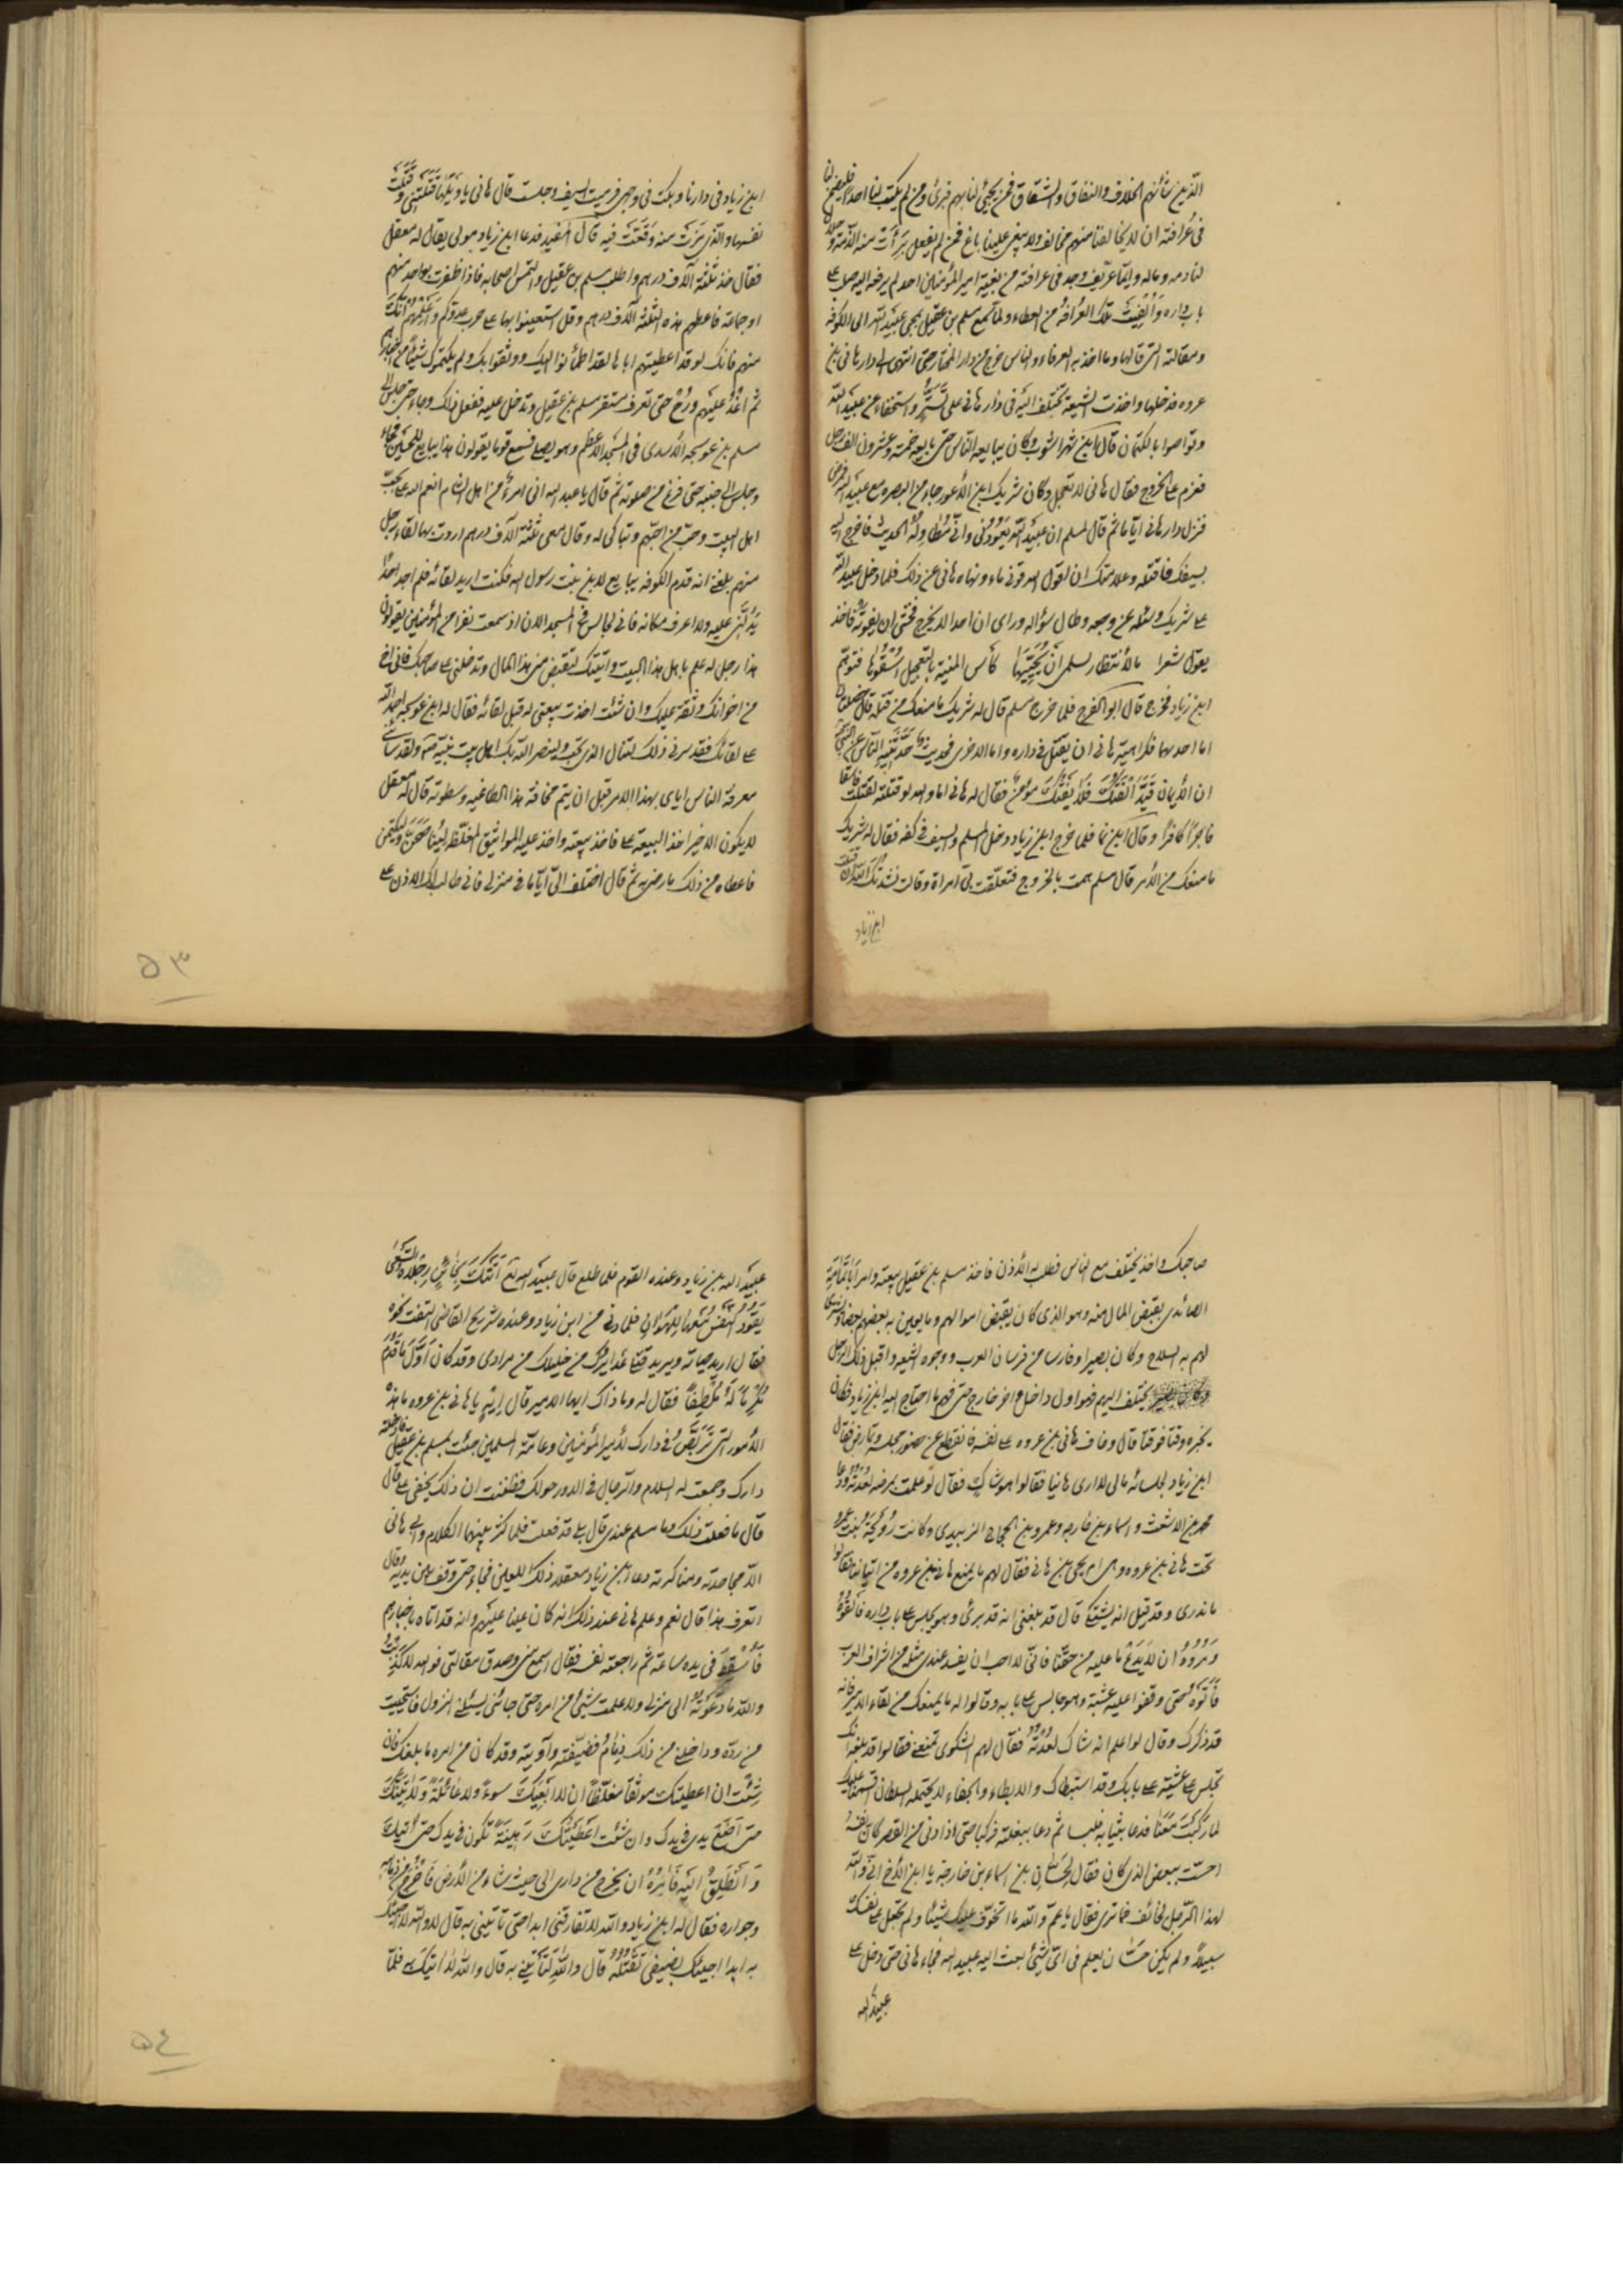 الّذين شأنهم الخلاف والنفاق والشقاق فمن يجيئ لنا بهم فبرئ ومن لم يكتب لنا احدا فليضمن لنا
فى عرافته ان لا يخالفنا منهم مخالف ولا يبغى علينا باغ فمن لم يفعل برأت منه الذمة وحلال
لنا دمه وماله وايّما عريف وجد فى عرافته من بغية امير المؤمنين احد لم يرفعه الينا صلب على
باب داره وألغيت تلك العرافة من العطاء ولما سمع مسلم بن عقيل بمجى عبيد الله الى الكوفه
ومقالته التى قالها وما اخذ به العرفاء والناس خرج من دار المختار حتى انتهى الى دار هانى بن
عروه فدخلها واخذت الشيعة تختلف اليه فى دار هانى على تستّر واستخفاء من عبيد الله
وتواصوا بالكتمان قال ابن شهراشوب وكان يبايعه الناس حتى بايعه خمسة وعشرون الف رجل
فعزم على الخروج فقال هانى لا تعجل وكان شريك ابن الأعور جاء من البصره مع عبيد الله فمرض
فنزل دار هانى ايّاما ثم قال لمسلم ان عبيد الله يعودنى وانّى مُطاوله الحديث فاخرج اليه
بسيفك فاقتله وعلامتك ان اقول اسقونى ماء ونهاه هانى عن ذلك فلما دخل عبيد الله
على شريك وسئله عن وجعه وطال سؤاله وراى ان احدا لا يخرج فخشى ان يفوته فاخذ
يقول شعرا ما الأنتظار بسلمى ان تُحيّيها كأس المنية بالتعجيل اسقوها فتوهّم
ابن زياد فخرج قال ابو الفرج فلما خرج مسلم قال له شريك ما منعك من قتله قال خصلتان
اما احديهما فكراهية هانى ان يقتل فى داره واما الاخرى فحديث حدّثنيه الناس عن النبى
ان الأيمان قيّد الفتك فلا يفتك مؤمن فقال له هانى اما والله لو قتلته لقتلت فاسقا
فاجرًا كافرًا وقال ابن نما فلما خرج ابن زياد ودخل مسلم والسيف فى كفه فقال له شريك
ما منعك من الأمر قال مسلم هممت بالخروج فتعلّقت بى امراة وقالت نشدتك الله ان قتلت
ابن زياد
ابن زياد فى دارنا وبكت فى وجهى فرميت السيف وجلست قال هانى يا ويلها قتلتنى وقتلت
نفسها والّذى فررت منه وقعت فيه قال المفيد فدعا ابن زياد مولى يقال له معقل
فقال خذ ثلثة آلاف درهم واطلب مسلم بن عقيل والتمس اصحابه فاذا ظفرت بواحد منهم
او جماعة فاعطهم هذه الثلثة آلاف درهم وقل استعينوا بها على حرب عدوكم واعلمهم انك
منهم فانك لو قد اعطيتهم اياها لقد اطمأنوا اليك ووثقوا بك ولم يكتموك شيئًا من اخبارهم
ثم اغد عليهم ورح حتى تعرف مستقر مسلم بن عقيل وتدخل عليه ففعل ذلك وجاء حتى جلس الى
مسلم بن عوسجه الأسدى فى المسجد الاعظم وهو يصلى فسمع قوما يقولون هذا يبايع للحسين فجاء
وجلس الى جنبه حتى فرغ من صلوته ثم قال يا عبد الله انى امرء من اهل الشام انعم الله على بحبّ
اهل البيت وحبّ من احبّهم وتباكى له وقال معى ثلثة آلاف درهم اردت بها لقاء رجل
منهم بلغنى انه قدم الكوفه يبايع لابن بنت رسول الله فكنت اريد لقائه فلم اجد احدًا
يدلّنى عليه ولا اعرف مكانه فانى لجالس فى المسجد الان اذ سمعت نفرا من المؤمنين يقولون
هذا رجل له علم باهل هذا البيت واتيتك لتقبض منى هذا المال وتدخلنى على صاحبك فانى اخ
من اخوانك وثقة عليك وان شئت اخذت بيعتى له قبل لقائه فقال له ابن عوسجه احمد الله
على لقائك فقد سرنى ذلك لتنال الذى تحب ولينصر الله بك اهل بيت نبيه ولقد سائنى
معرفة الناس اياى بهذا الامر قبل ان يتم مخافة هذا الطاغيه وسطوته قال له معقل
لا يكون الا خيرا خذ البيعة على فاخذ بيعته واخذ عليه المواثيق المغلّظه ليناصحن وليكتمن
فاعطاه من ذلك ما رضى به ثم قال اختلف الىّ ايّاما فى منزلى فانى طالب لك الاذن على
٥٣
صاحبك واخذ يختلف مع الناس فطلب له الأذن فاخذ مسلم بن عقيل بيعته وامر ابا ثمامة
الصائدى بقبض المال منه وهو الذى كان يقبض اموالهم وما يعين به بعضهم بعضا ويشترى
لهم به السلاح وكان بصيرا وفارسا من فرسان العرب ووجوه الشيعه واقبل ذلك الرجل
يختلف اليهم فهو اول داخل واخر خارج حتى فهم ما احتاج اليه ابن زياد فكان
يخبره وقتا فوقتا قال وخاف هانى بن عروه على نفسه فانقطع عن حضور مجلسه وتمارض فقال
ابن زياد لجلسائه مالى لا ارى هانيا فقالوا هو شاكٍ فقال لو علمت بمرضه لعدته ودعا
محمد بن الاشعث واسماء بن خارجه وعمرو بن الحجاج الزبيدى وكانت رويحة بنت عمرو
تحت هانى بن عروه وهى ام يحيى بن هانى فقال لهم ما يمنع هانى بن عروه من اتياننا فقالوا
ما ندرى وقد قيل انه يشتكى قال قد بلغنى انه قد برئ وهو يجلس على باب داره فالقوه
ومروه ان لا يدع ما عليه من حقنا فانّى لا احب ان يفسد عندى مثله من اشراف العرب
فأتوه حتى وقفوا عليه عشية وهو جالس على بابه وقالوا له ما يمنعك من لقاء الامير فانه
قد ذكرك وقال لو اعلم انه شاك لعدته فقال لهم الشكوى تمنعنى فقالوا قد بلغه انك
تجلس كل عشية على بابك وقد استبطاك والابطاء والجفاء لا يحتمله السلطان اقسمنا عليك
لما ركبت معنا فدعا بثيابه فلبسها ثم دعا ببغلته فركبها حتى اذا دنى من القصر كان نفسه
احسّت ببعض الذى كان فقال لحسّان بن اسماء بن خارجة يا ابن الأخ انّى والله
لهذا الرّجل لخائف فما ترى فقال يا عمّ والله ما اتخوّف عليك شيئًا ولم تجعل على نفسك
سبيلا ولم يكن حسّان يعلم فى اىّ شيئ بعث اليه عبيد الله فجاء هانى حتى دخل على
عبيد الله
عبيد الله بن زياد وعنده القوم فلما طلع قال عبيد الله اتتك بخائن رجلاه
يقود النفس للهوان فلما دنى من ابن زياد وعنده شريح القاضى التفت نحوه
فقال اريد حياته ويريد قتلى عذيرك من خليلك من مرادى وقد كان اوّل ما قدم
مكرما له ملطفًا فقال له وما ذاك ايها الامير قال ايه يا هانى بن عروه ما هذه
الأمور التى تربّص فى دارك لأمير المؤمنين وعامّة المسلمين جئت بمسلم بن عقيل فادخلته
دارك وجمعت له السلاح والرجال فى الدور حولك وظننت ان ذلك يخفى على قال
قال ما فعلت ذلك وما مسلم عندى قال بلى قد فعلت فلما كثر بينهما الكلام وابى هانى
الاّ مجاحدته ومناكرته دعا ابن زياد معقلا ذلك اللعين فجاء حتى وقف بين يديه وقال
اتعرف هذا قال نعم وعلم هانى عند ذلك انه كان عينا عليهم وانه قد اتاه باخبارهم
فأسقط فى يده ساعة ثم راجعته نفسه فقال اسمع منى وصدق مقالتى فوالله لا كذبت
والله ما دعوته الى منزلى ولا علمت بشيئ من امره حتى جائنى يسئلنى النزول فاستحييت
من ردّه وداخلنى من ذلك ذمام فضيّفته وآويته وقد كان من امره ما بلغك فان
شئت ان اعطيتك موثقًا مغلّظًا ان لا ابغيك سوءً ولا غائلة ولاتينك
حتى اضع يدى فى يدك وان شئت اعطيتك رهينة تكون فى يدك حتى اتيك
وانطلق اليه فامره ان يخرج من دارى الى حيث شاء من الأرض فاخرج من ذمامه
وجواره فقال له ابن زياد والله لا تفارقنى ابدا حتى تاتينى به قال لا والله لا اجيئك
به ابدا اجيئك بضيفى تقتله قال والله لتأتينى به قال والله لا اتيك به فلمّا
٥٤